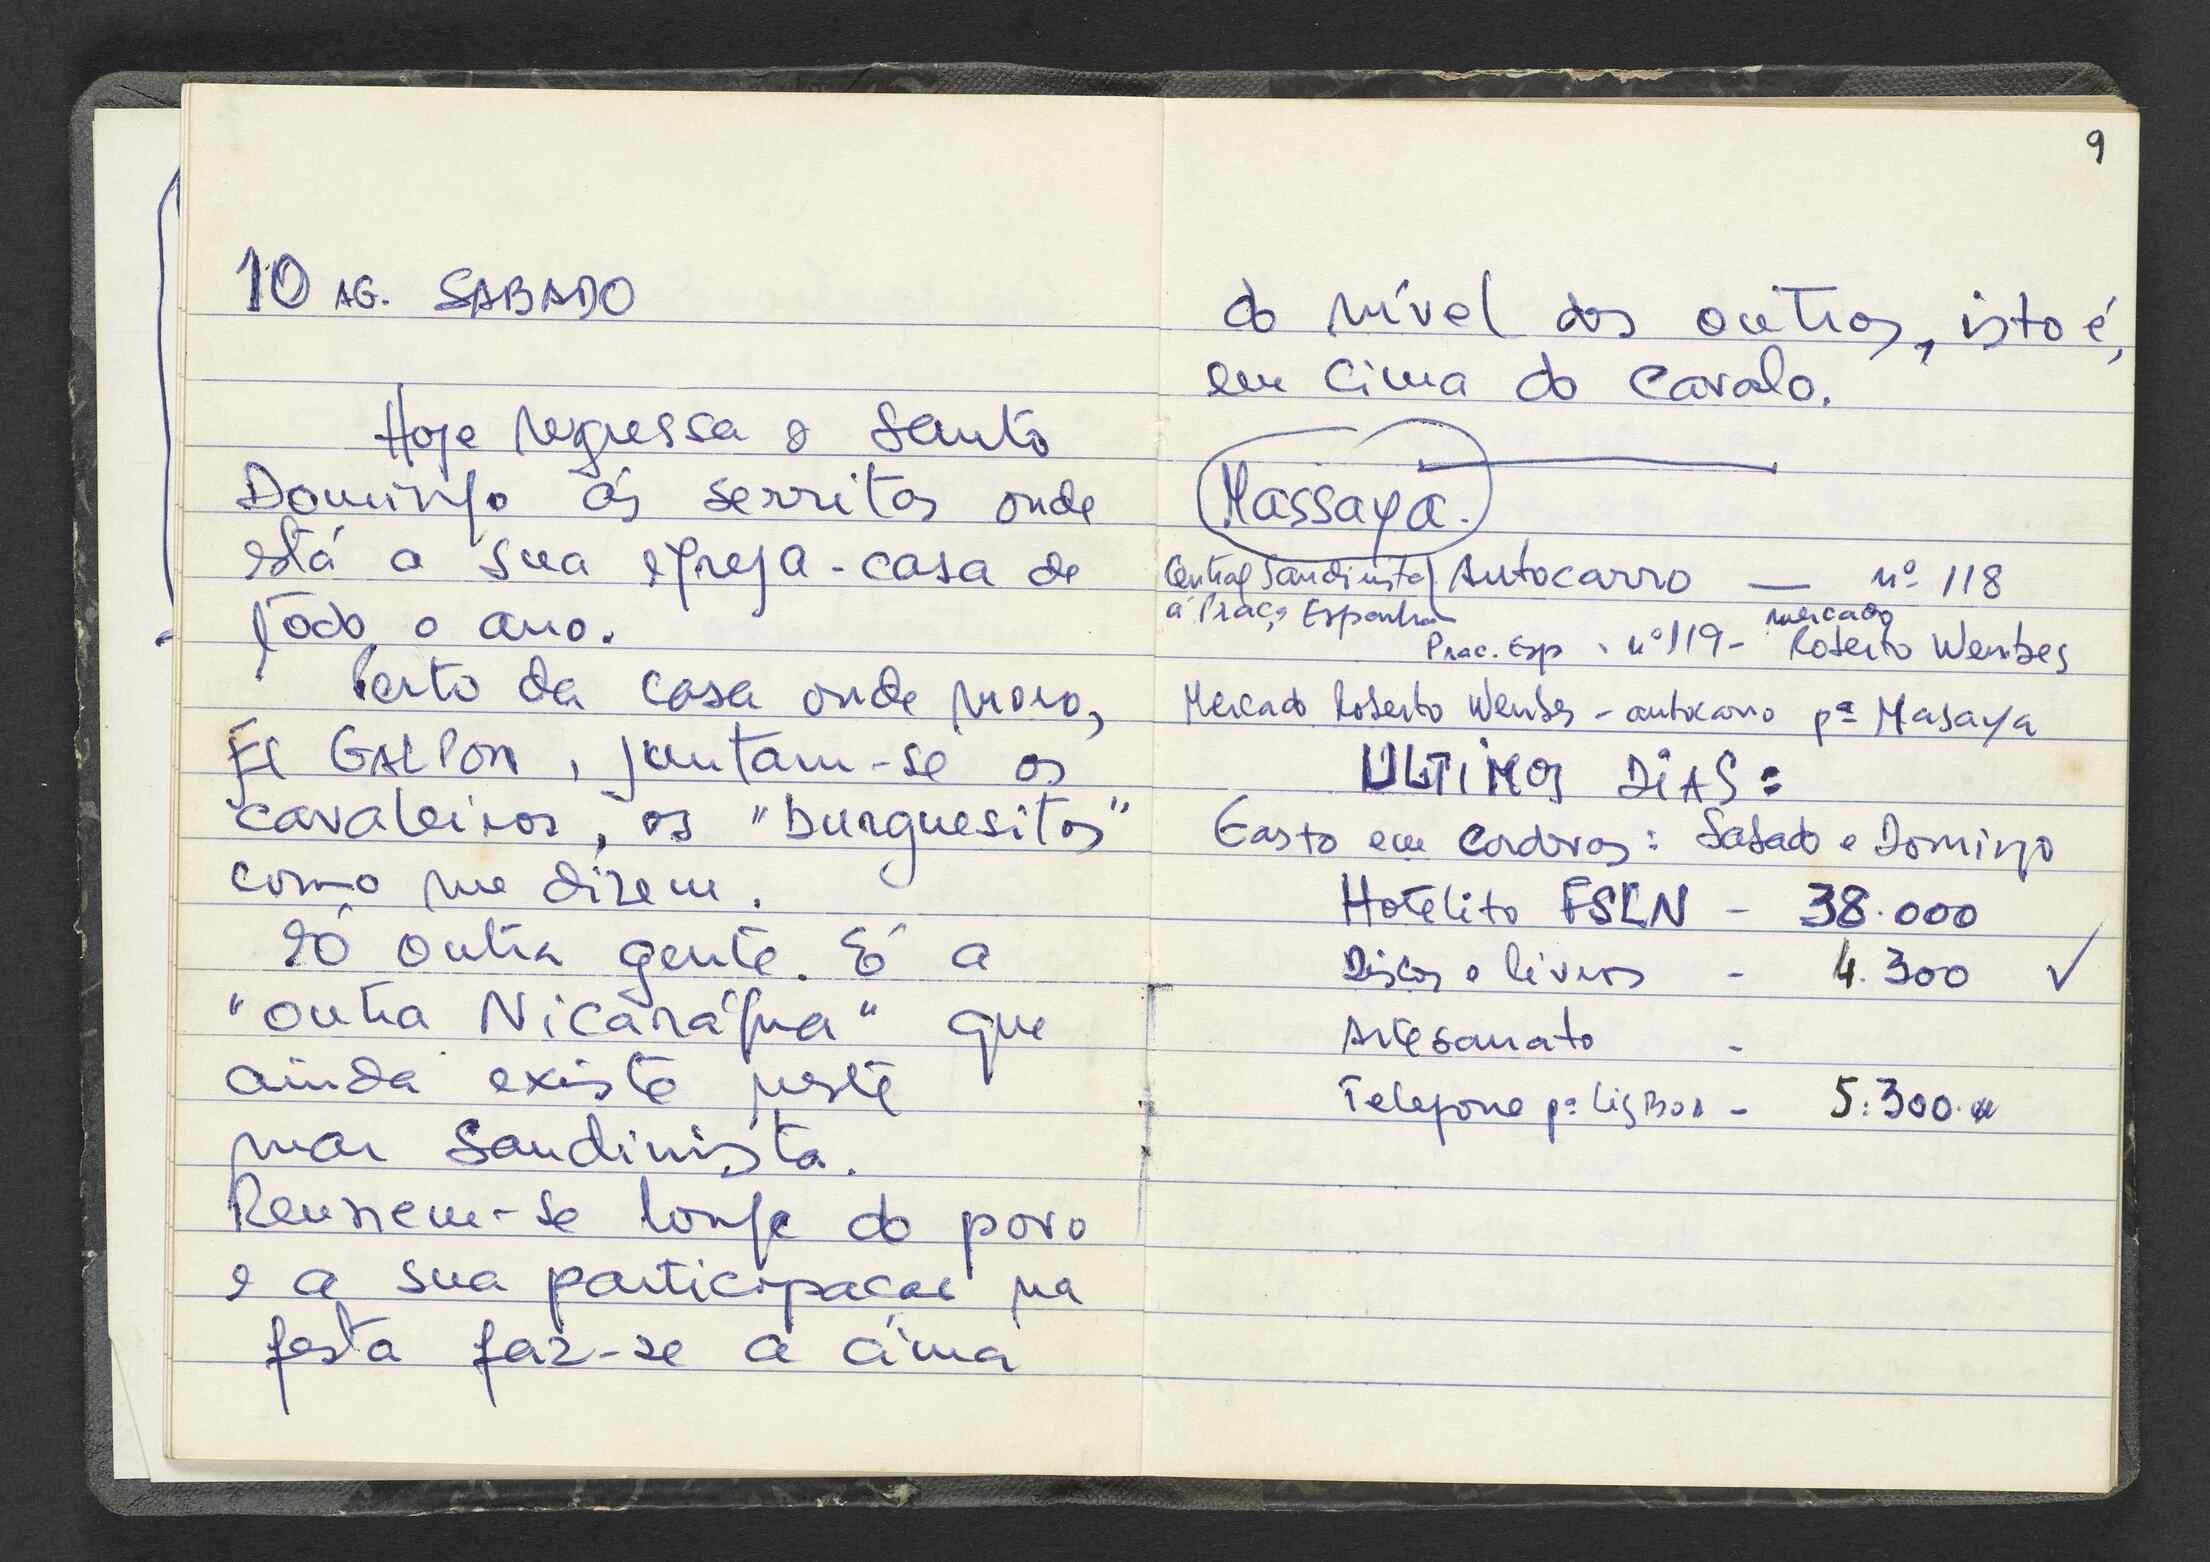 10 AG. SABADO
Hoje regressa o Santo
Domingo ás serritas onde
está a sua igreja-casa de
todo o ano.
Perto da casa onde moro,
El GALPON, juntam-se os
cavaleiros, os "burguesitos"
como me dizem.
Só outra gente. É a
"outra Nicarágua" que
ainda existe neste
mar Sandinista.
Reunem-se longe do povo
e a sua participacao na
festa faz-se a cima
9
do nível dos outros, isto é,
em cima do cavalo.
Massaya.
Central Sandinista Autocarro — nº 118
á Praça Espanha
Prac. Esp. nº 119 - mercado Roberto Wembes
Mercado Roberto Wembes - autocarro pª Masaya
ULTIMOS DIAS:
Gasto em Cordovas: Sabado e Domingo
Hotelito FSLN - 38.000
Discos e livros - 4.300 ✓
Artesanato -
Telefone pª Lisboa - 5.300.